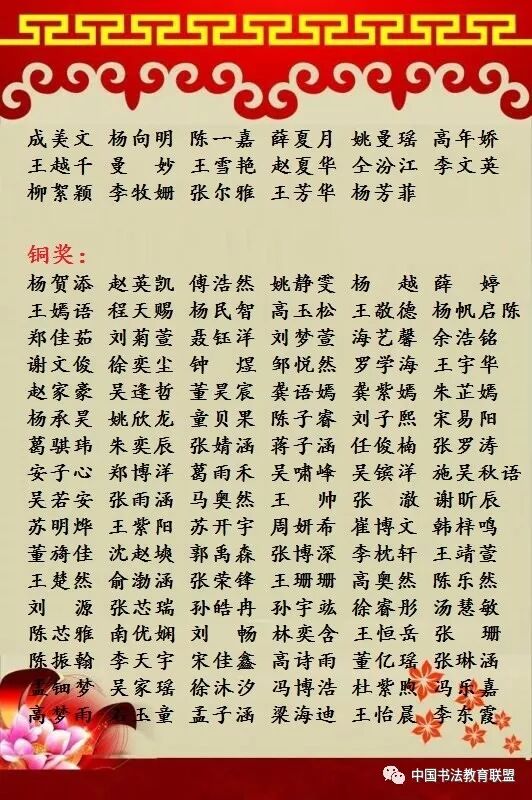 成美文 杨向明 陈一嘉 薛夏月 姚曼瑶 高年娇
王越千 曼 妙 王雪艳 赵夏华 仝汾江 李文英
柳絮颖 李牧姗 张尔雅 王芳华 杨芳菲
铜奖：
杨贺添 赵英凯 傅浩然 姚静雯 杨 越 薛 婷
王嫣语 程天赐 杨民智 高玉松 王敬德 杨帆启陈
郑佳茹 刘菊萱 聂钰洋 刘梦萱 海艺馨 余浩铭
谢文俊 徐奕尘 钟 煜 邹悦然 罗学海 王宇华
赵家豪 吴逢哲 董昊宸 龚语嫣 龚紫嫣 朱芷嫣
杨承昊 姚欣龙 童贝果 陈子睿 刘子熙 宋易阳
葛骐玮 朱奕辰 张婧涵 蒋子涵 任俊楠 张罗涛
安子心 郑博洋 葛雨禾 吴啸峰 吴镔洋 施吴秋语
吴若安 张雨涵 马奥然 王 帅 张 澈 谢昕辰
苏明烨 王紫阳 苏开宇 周妍希 崔博文 韩梓鸣
董旖佳 沈赵㛃 郭禹森 张博深 李枕轩 王靖萱
王楚然 俞渤涵 张荣锋 王珊珊 高奥然 陈乐然
刘 源 张芯瑞 孙皓冉 孙宇竑 徐睿彤 汤慧敏
陈芯雅 南优娴 刘 畅 林奕含 王恒岳 张 珊
陈振翰 李天宇 宋佳鑫 高诗雨 董亿瑶 张琳涵
孟钿梦 吴家瑶 徐沐汐 冯博浩 杜紫煦 冯乐嘉
高梦雨 玉童 孟子涵 梁海迪 王怡晨 李东霞
中国书法教育联盟